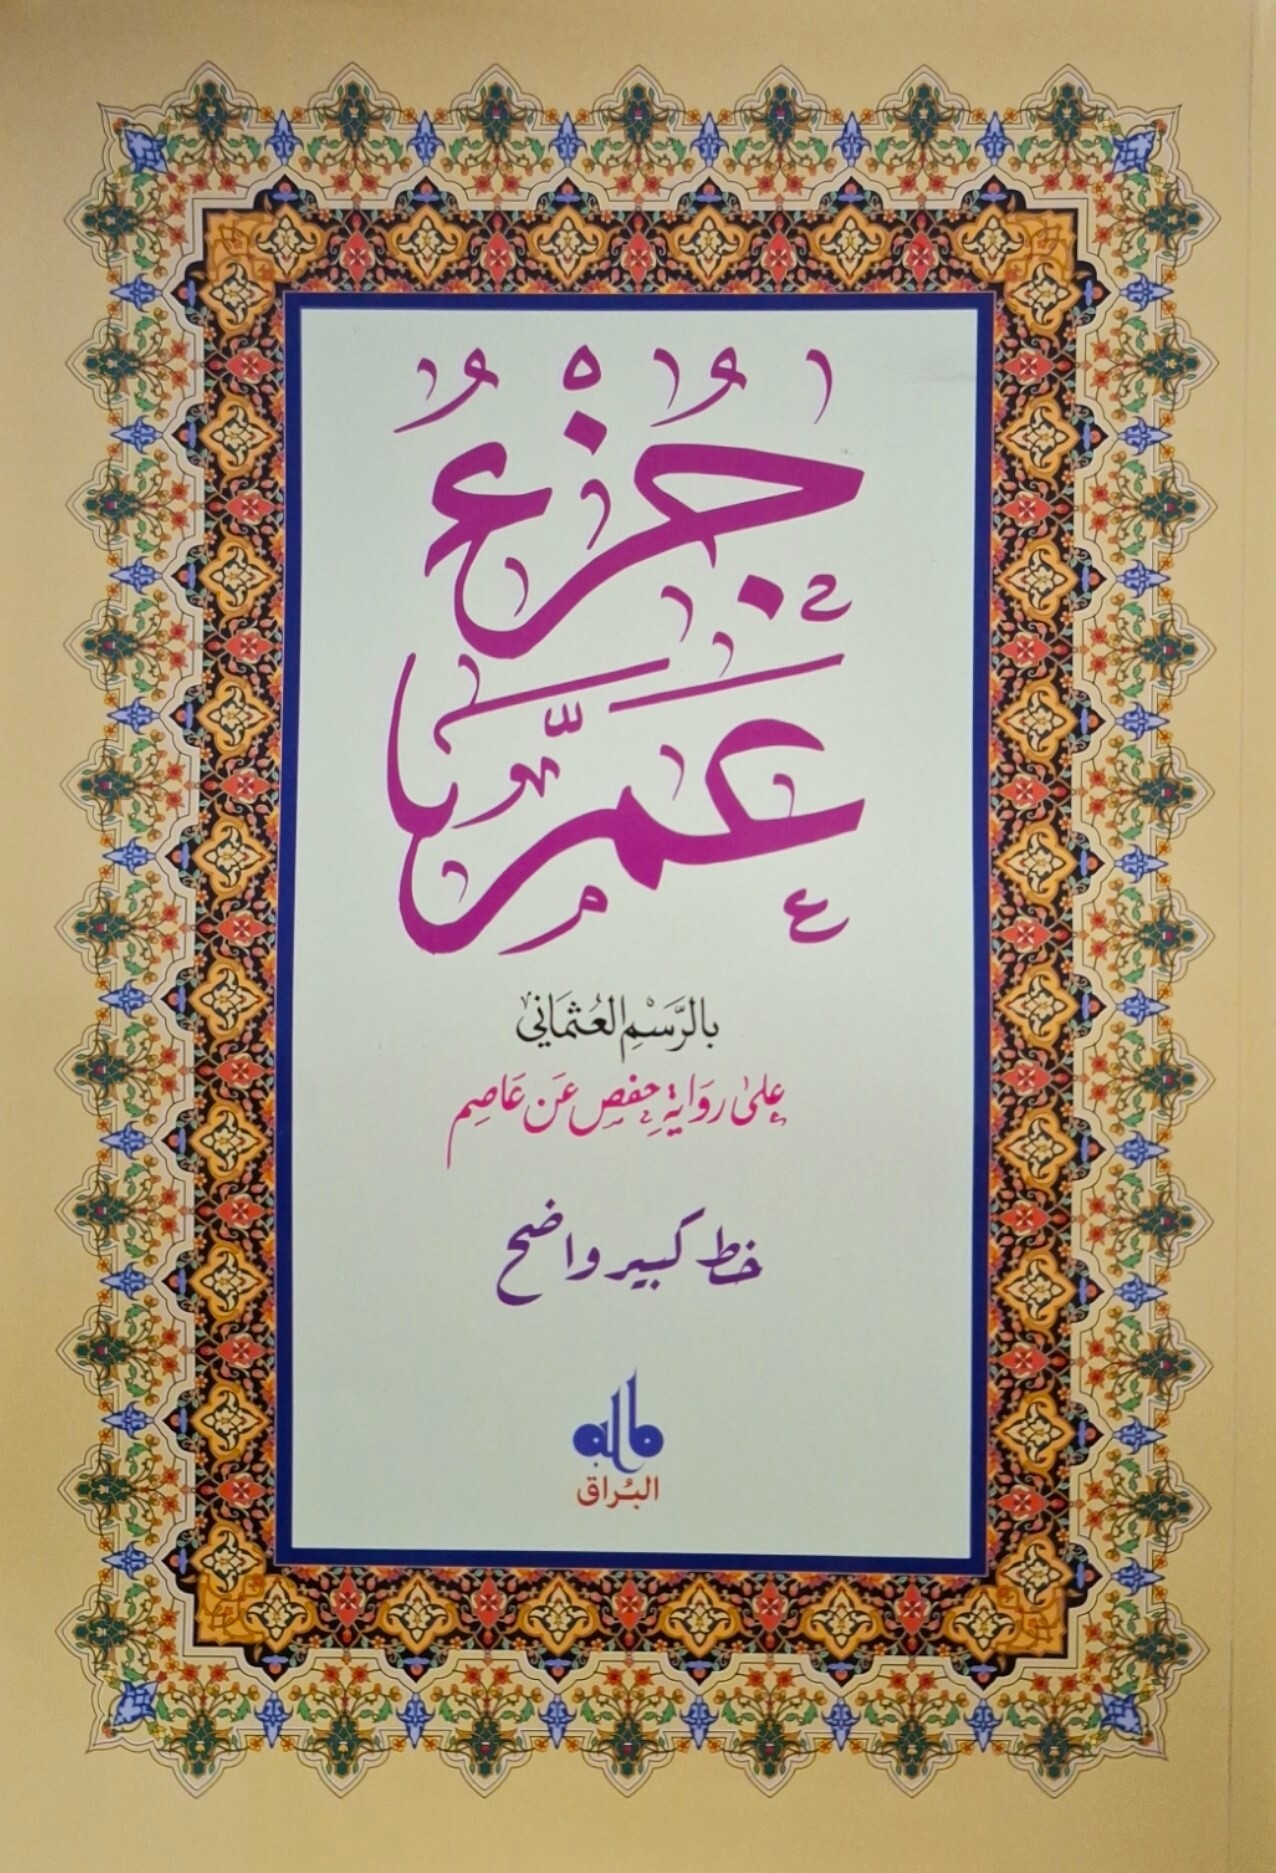 جُزْءُ
عَمَّ
بِالرَّسْمِ العُثمَاني
عَلىٰ روَايَةِ حفص عَن عَاصِم
خط كبير واضح
البُراق